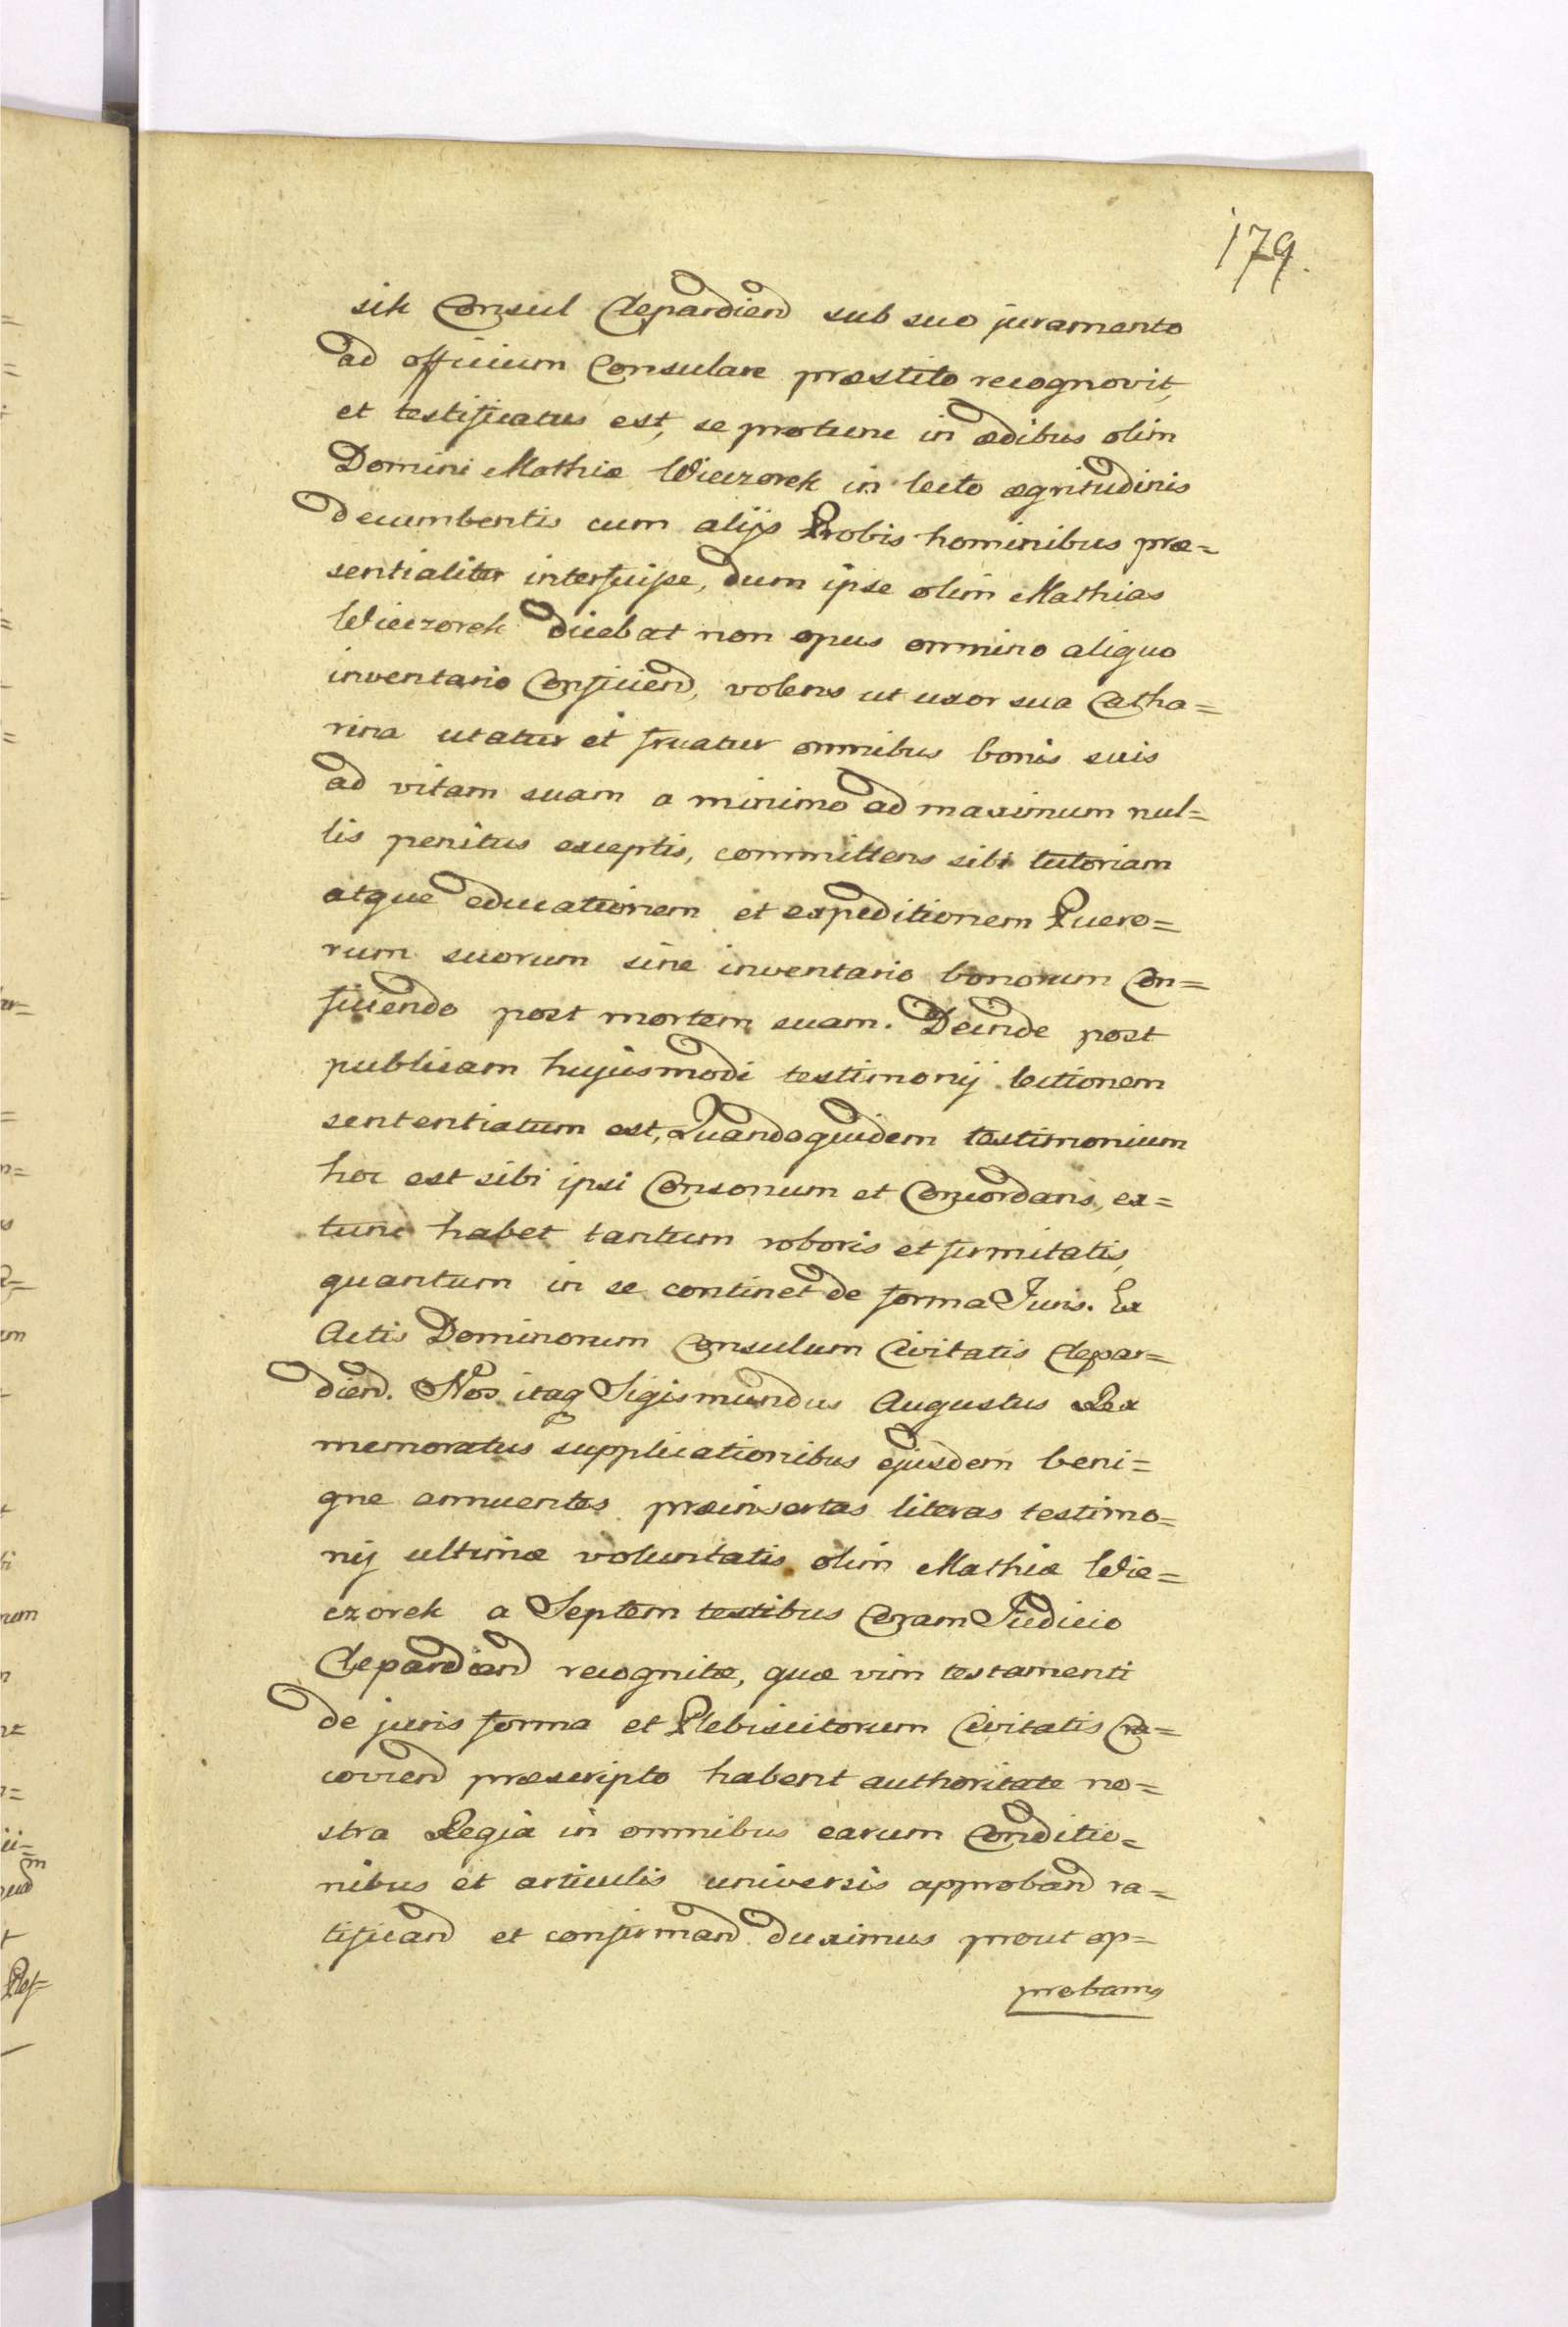 179.
sik Consul Clepardien sub suo juramento
ad officium Consulare præstito recognovit,
et testificatus est, se protunc in ædibus olim
Domini Mathiæ Wieczorek in lecto ægritudinis
decumbentis cum alijs Probis hominibus præ=
sentialiter interfuisse, dum ipse olim Mathias
Wieczorek dicebat non opus omnino aliquo
inventario Conficiend, volens ut uxor sua Catha=
rina utatur et fruatur omnibus bonis suis
ad vitam suam a minimo ad maximum nul=
lis penitus exceptis, committens sibi tutoriam
atque educationem et expeditionem Puero=
rum suorum sine inventario bonorum Con=
ficiendo post mortem suam. Deinde post
publicam hujusmodi testimonij lectionem
sententiatum est, Quandoquidem testimonium
hoc est sibi ipsi Consonum et Concordans, ex=
tunc habet tantum roboris et firmitatis,
quantum in se continet de forma Juris. Ex
Actis Dominorum Consulum Civitatis Clepar=
dien. Nos itaq Sigismundus Augustus Rex
memoratus supplicationibus ejusdem beni=
gne annuentes præinsertas literas testimo=
nij ultimæ voluntatis olim Mathiæ Wie=
czorek a Septem testibus Coram Judicio
Clepardien recognitæ, quæ vim testamenti
de juris forma et Plebiscitorum Civitatis Cra=
covien præscripto habent authoritate no=
stra Regia in omnibus earum Conditio=
nibus et articulis universis approband ra=
tificand et confirmand duximus prout ap=
probamꝰ